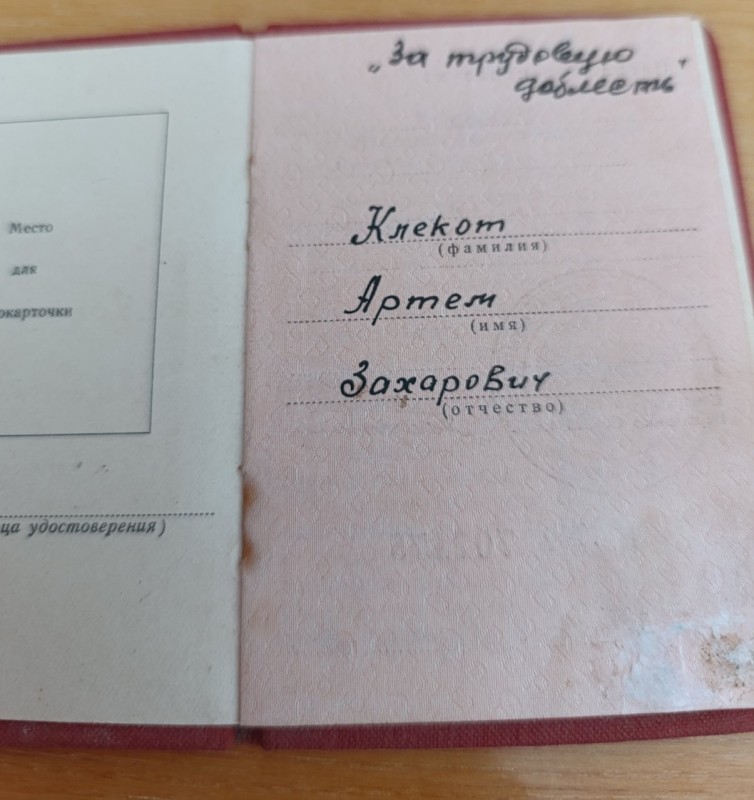 Место
для
окарточки
ца удостоверения)
„За трудовую
доблесть"
Клекот
(фамилия)
Артем
(имя)
Захарович
(отчество)